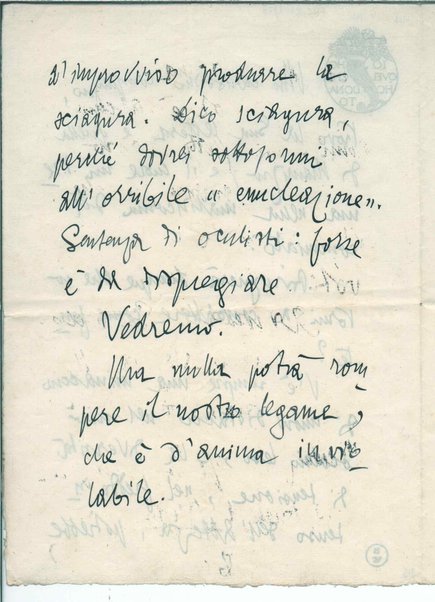 d'improvviso produrre la
sciagura. Dico sciagura,
perché dovrei sottopormi
all'orribile « enucleazione ».
Sentenza di oculisti: forse
è da dispregiare
Vedremo.
Ma nulla potrà rom
pere il nostro legame,
che è d'anima invio
labile.